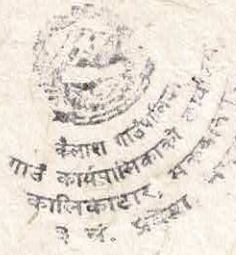 कैलाश गाउँपालिका
गाउँ कार्यपालिकाको कार्यालय
कालिकाटार, मकवानपुर
३ नं. प्रदेश